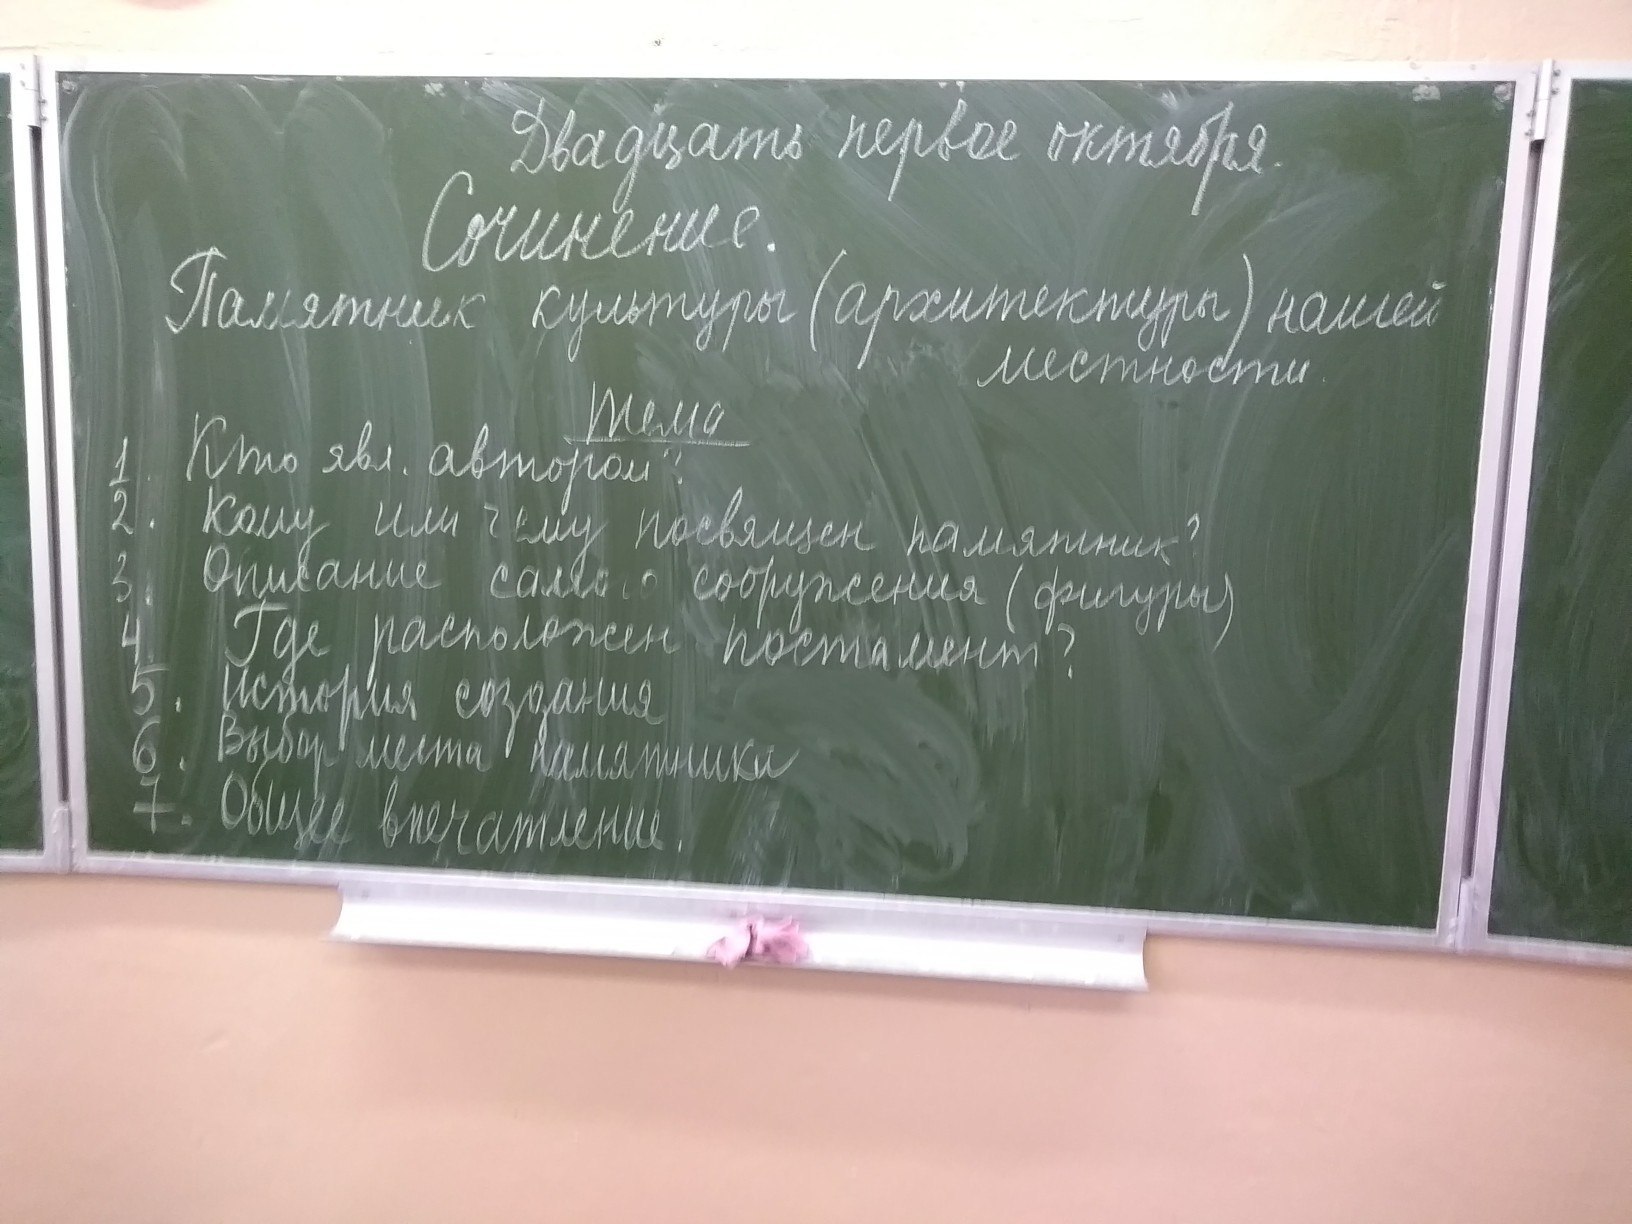 Двадцать первое октября.
Сочинение.
Памятник культуры (архитектуры) нашей
местности.
Тема
1. Кто явл. автором?
2. Кому или чему посвящен памятник?
3. Описание самого сооружения (фигуры)
4. Где расположен постамент?
5. История создания
6. Выбор места памятника
7. Общее впечатление.